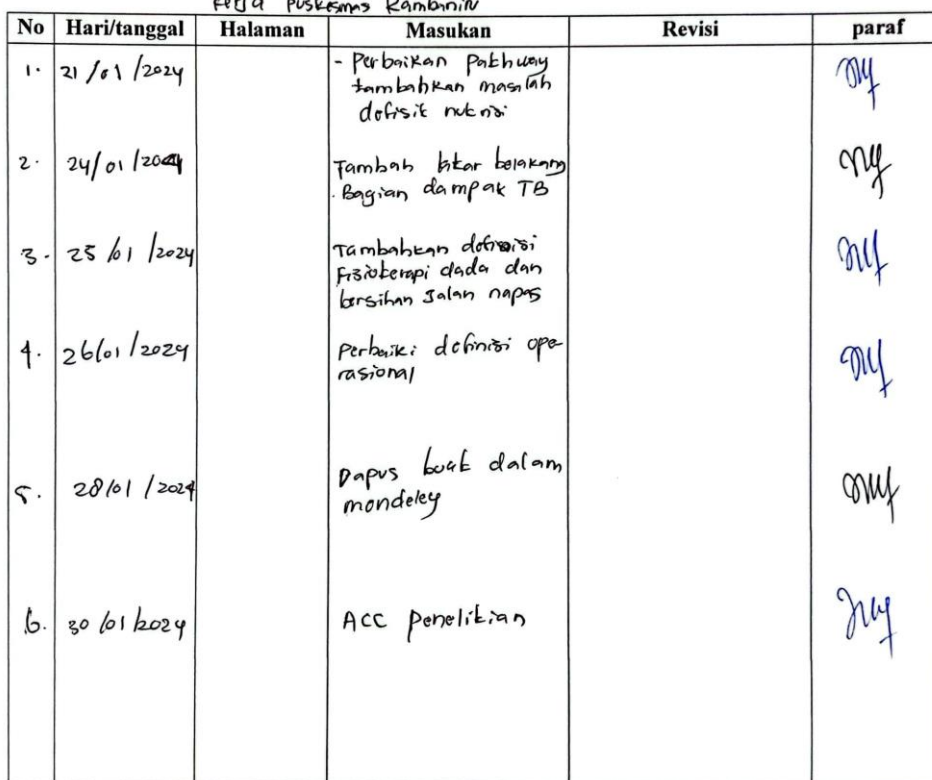 Kerja Puskesmas Kambaniru
No Hari/tanggal Halaman Masukan Revisi paraf
1. 21/01/2024 - Perbaikan Pathway
tambahkan masalah
defisit nutrisi
2. 24/01/2024 Tambah latar belakang
. Bagian dampak TB
3. 25/01/2024 Tambahkan definisi
Fisioterapi dada dan
bersihan Jalan napas
4. 26/01/2024 Perbaiki definisi ope-
rasional
5. 28/01/2024 Dapus buat dalam
mendeley
6. 30/01/2024 ACC penelitian